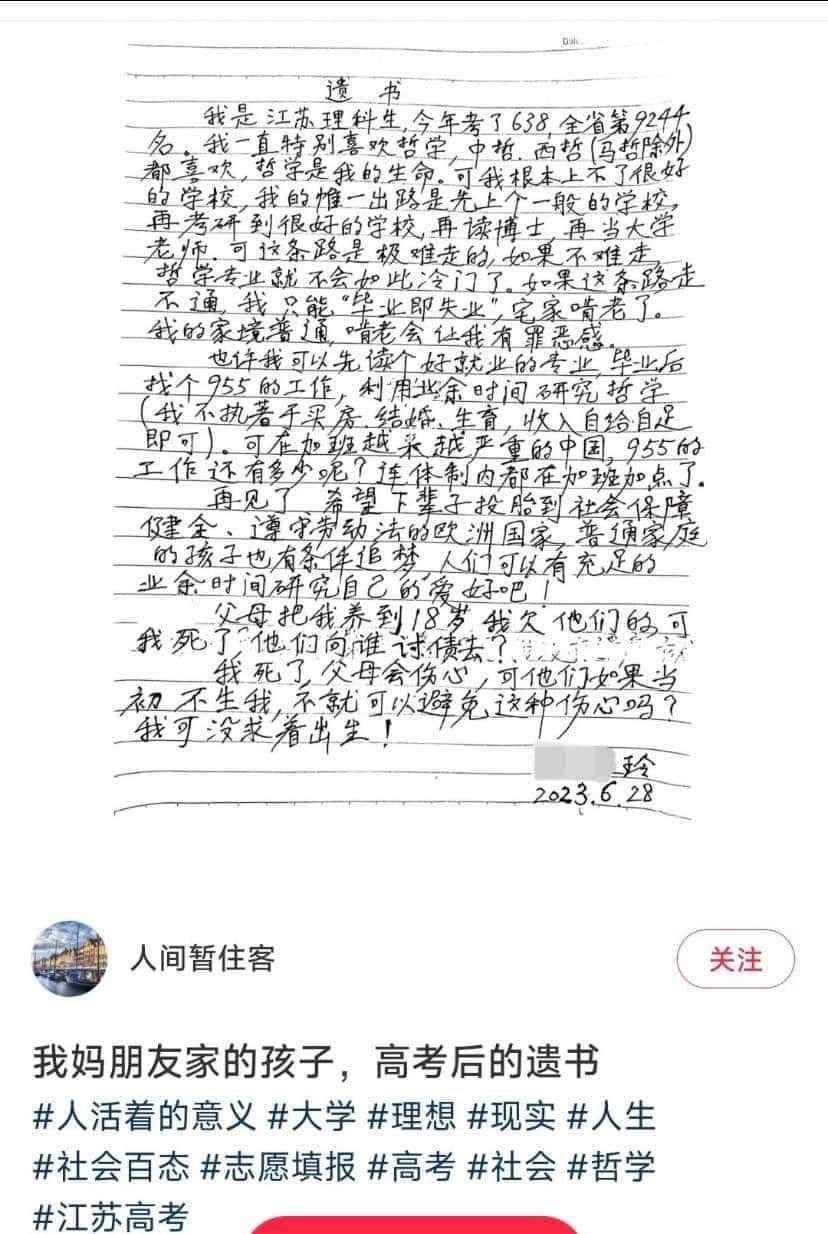 遗书
我是江苏理科生,今年考了638,全省第9244
名。我一直特别喜欢哲学,中哲.西哲(马哲除外)
都喜欢,哲学是我的生命.可我根本上不了很好
的学校,我的惟一出路是先上个一般的学校,
再考研到很好的学校,再读博士,再当大学
老师.可这条路是极难走的,如果不难走,
哲学专业就不会如此冷门了。如果这条路走
不通,我只能“毕业即失业”,宅家啃老了。
我的家境普通,啃老会让我有罪恶感。
也许我可以先读个好就业的专业,毕业后
找个955的工作,利用业余时间研究哲学
(我不执著于买房.结婚、生育,收入自给自足
即可)。可在加班越来越严重的中国,955的
工作还有多少呢?连体制内都在加班加点了.
再见了 希望下辈子投胎到社会保障
健全、遵守劳动法的欧洲国家,普通家庭
的孩子也有条件追梦,人们可以有充足的
业余时间研究自己的爱好吧!
父母把我养到18岁 我欠他们的,可
我死了 他们向谁讨债去?
我死了,父母会伤心,可他们如果当
初不生我,不就可以避免这种伤心吗?
我可没求着出生!
玲
2023.6.28
人间暂住客
关注
我妈朋友家的孩子，高考后的遗书
#人活着的意义 #大学 #理想 #现实 #人生
#社会百态 #志愿填报 #高考 #社会 #哲学
#江苏高考